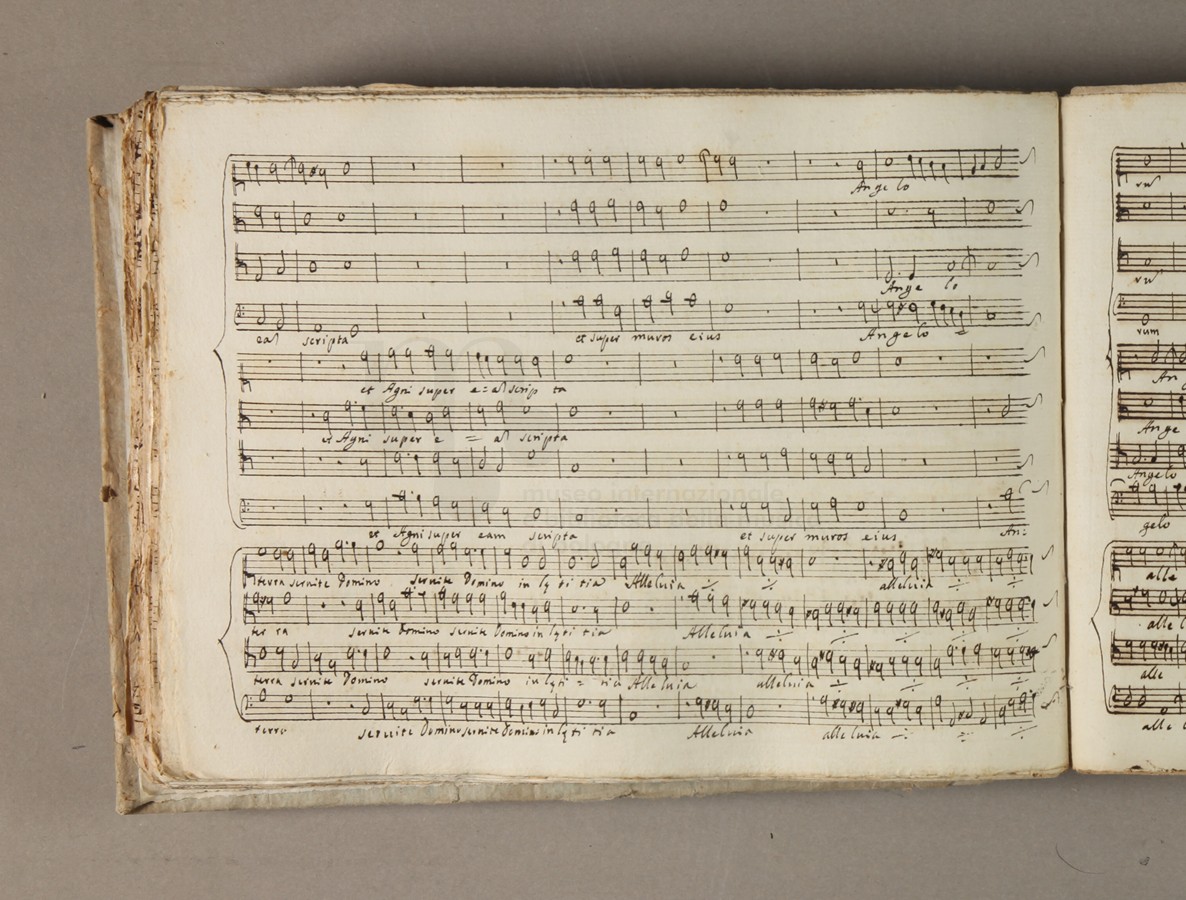 Angelo
Angelo
eas scripta et super muros eius Angelo
et Agni super e = as scrip ta
et Agni super e = as scripta
museo internazionale
et Agni super eam scripta et super muros eius An:
terra servite Domino servite Domino in lęti tia Alleluia alleluia
ter ra servite Domino servite Domino in lęti tia Alleluia
terra servite Domino servite Domino in lęti = tia Alleluia alleluia
terra servite Domino servite Domino in lęti tia Alleluia alle luia
rum
An
Ange
Angelo
gelo
alle
alle
alle
alle